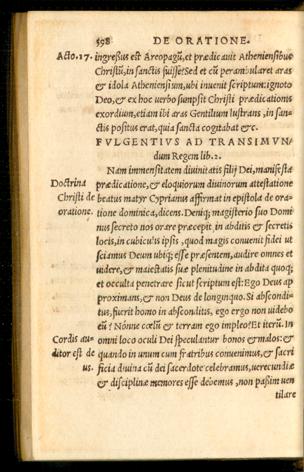 598 DE ORATIONE.
Acto.17. ingreſſus eſt Areopagũ, et prædicauit Athenienſibus
Chriſtũ, in ſanctis fuiſſe? Sed et cũ perambularet aras
& idola Athenienſium, ubi inuenit ſcriptum: ignoto
Deo, & ex hoc uerbo ſumpſit Chriſti prædicationis
exordium, etiam ibi aras Gentilium luſtrans, in ſan-
ctis poſitus erat, quia ſancta cogitabat &c.
FVLGENTIVS AD TRANSIMVN/
dum Regem lib.2.
Nam immenſitatem diuinitatis filij Dei, manifeſta
Doctrina prædicatione, & eloquiorum diuinorum atteſtatione
Chriſti de beatus matyr Cyprianus affirmat in epiſtola de ora-
oratione. tione dominica, dicens. Deniq; magiſterio ſuo Domi
nus ſecreto nos orare præcepit, in abditis & ſecretis
locis, in cubiculis ipſis, quod magis conuenit fidei ut
ſciamus Deum ubiq; eſſe præſentem, audire omnes et
uidere, & maieſtatis ſuæ plenitudine in abdita quoq;
et occulta penetrare ſicut ſcriptum eſt: Ego Deus ap
proximans, & non Deus de longinquo. Si abſcondi-
tus, fuerit homo in abſconditis, ego ergo non uidebo
eũ? Nonne cœlũ & terram ego impleo? Et iterũ. In
Cordis au- omni loco oculi Dei ſpeculantur bonos & malos: &
ditor eſt de quando in unum cum fratribus conuenimus, & ſacri
us. ficia diuina cũ dei ſacerdote celebramus, uerecundiæ
& diſciplinæ memores eſſe debemus, non paßim uen
tilare